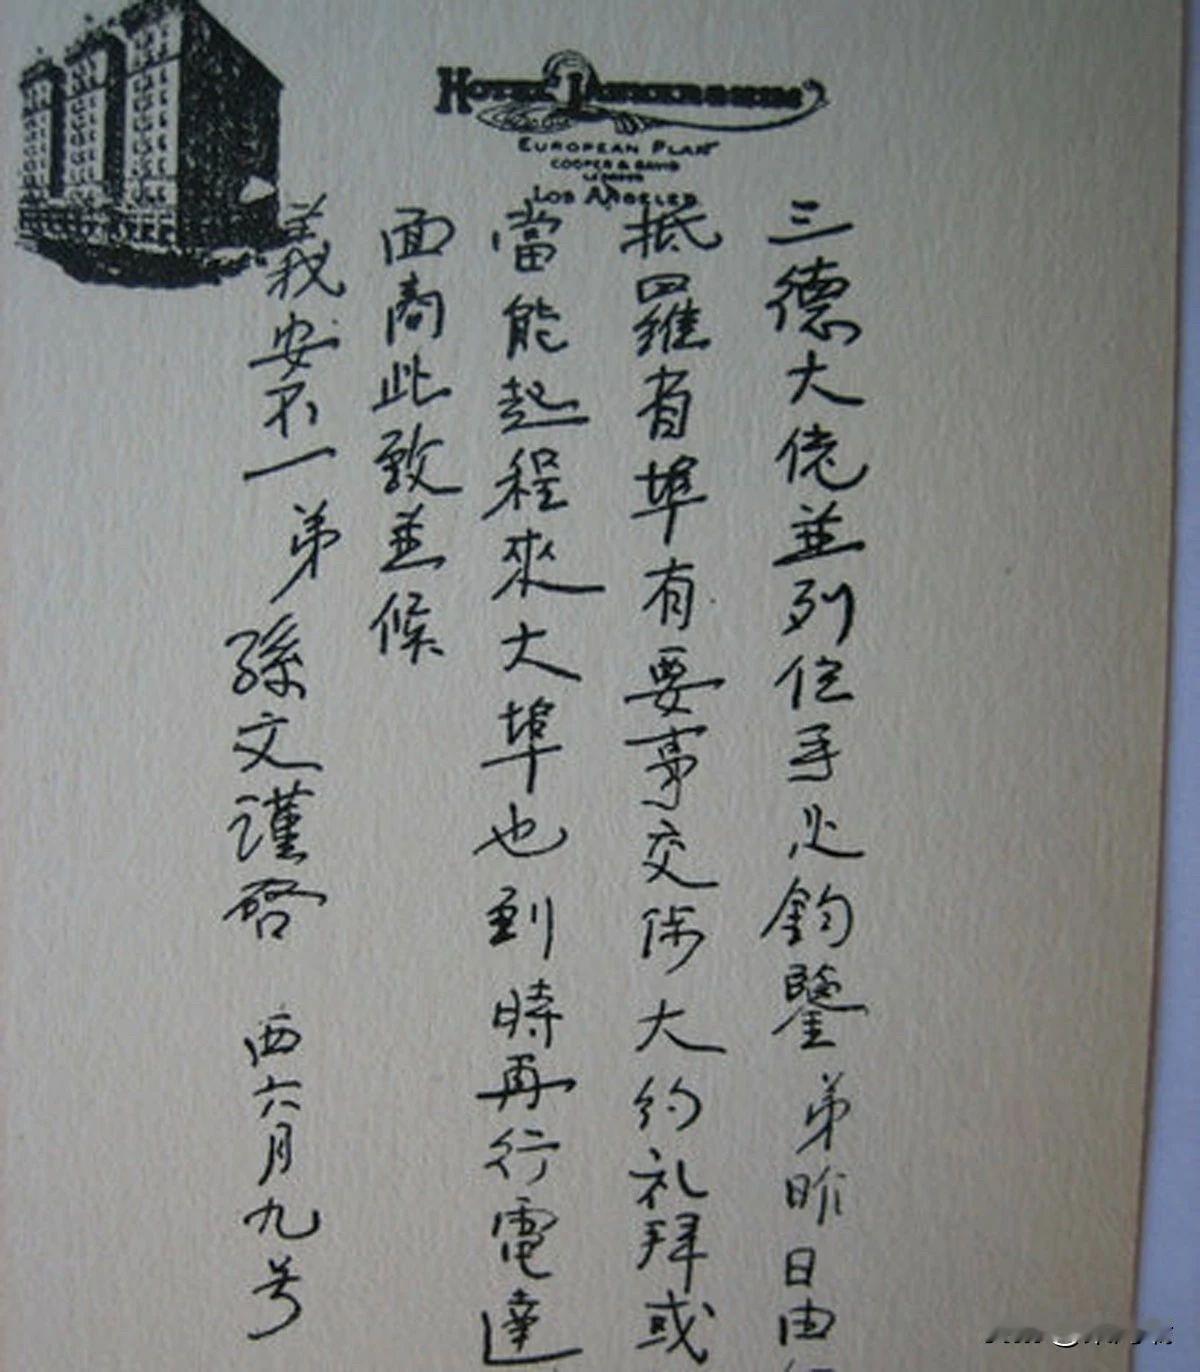 HOTEL LANKERSHIM
EUROPEAN PLAN
COOPER & DAVIS
LOS ANGELES
三德大佬並列位手足鈞鑒弟昨日由
抵羅省埠有要事交涉大約礼拜或
當能起程來大埠也到時再行電達
面商此致並候
義安不一弟孫文謹啓 西六月九号